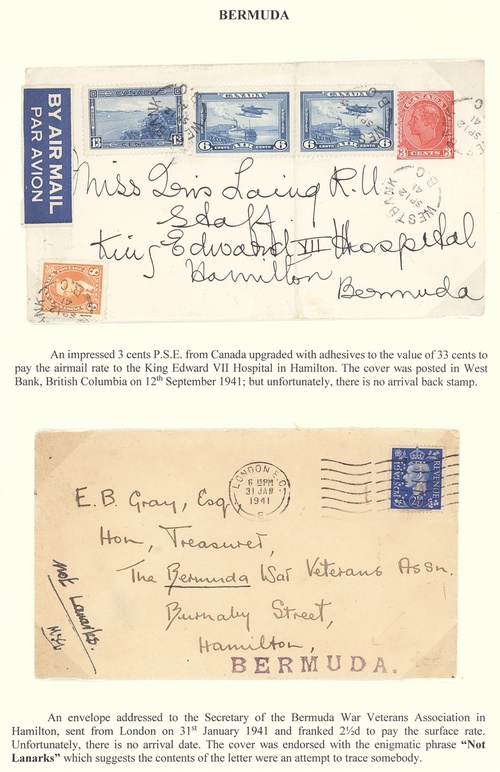 BERMUDA
BY AIR MAIL
PAR AVION
CANADA
13 CENTS 13
CANADA
6 CENTS AIR CENTS 6
CANADA
6 CENTS AIR CENTS 6
CANADA
3 CENTS 3
WESTBANK
SP 12
41
B.C.
Miss Laing R.N.
Staff
King Edward VII Hospital
Hamilton
Bermuda
An impressed 3 cents P.S.E. from Canada upgraded with adhesives to the value of 33 cents to
pay the airmail rate to the King Edward VII Hospital in Hamilton. The cover was posted in West
Bank, British Columbia on 12th September 1941; but unfortunately, there is no arrival back stamp.
LONDON E.C.
6 15 PM
31 JAN
1941
E
POSTAGE REVENUE
2½D
E. B. Gray, Esq,
Hon, Treasurer,
The Bermuda War Veterans Assn.
Burnaby Street,
Hamilton,
BERMUDA.
Not Lanarks.
An envelope addressed to the Secretary of the Bermuda War Veterans Association in
Hamilton, sent from London on 31st January 1941 and franked 2½d to pay the surface rate.
Unfortunately, there is no arrival date. The cover was endorsed with the enigmatic phrase “Not
Lanarks” which suggests the contents of the letter were an attempt to trace somebody.